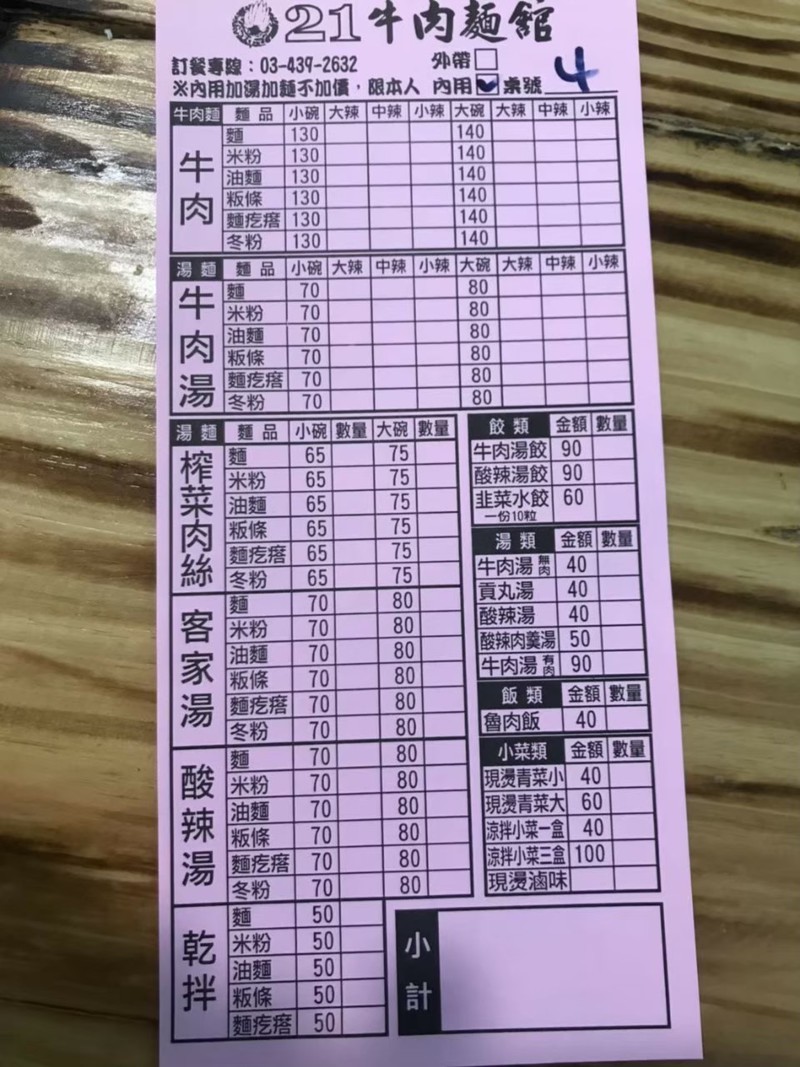 21牛肉麵館
訂餐專線：03-439-2632 外帶
※內用加湯加麵不加價，限本人 內用 桌號 4
牛肉麵 麵品 小碗 大辣 中辣 小辣 大碗 大辣 中辣 小辣
牛肉
麵 130 140
米粉 130 140
油麵 130 140
粄條 130 140
麵疙瘩 130 140
冬粉 130 140
湯麵 麵品 小碗 大辣 中辣 小辣 大碗 大辣 中辣 小辣
牛肉湯
麵 70 80
米粉 70 80
油麵 70 80
粄條 70 80
麵疙瘩 70 80
冬粉 70 80
湯麵 麵品 小碗 數量 大碗 數量
榨菜肉絲
麵 65 75
米粉 65 75
油麵 65 75
粄條 65 75
麵疙瘩 65 75
冬粉 65 75
客家湯
麵 70 80
米粉 70 80
油麵 70 80
粄條 70 80
麵疙瘩 70 80
冬粉 70 80
酸辣湯
麵 70 80
米粉 70 80
油麵 70 80
粄條 70 80
麵疙瘩 70 80
冬粉 70 80
乾拌
麵 50
米粉 50
油麵 50
粄條 50
麵疙瘩 50
餃類 金額 數量
牛肉湯餃 90
酸辣湯餃 90
韭菜水餃 60
一份10粒
湯類 金額 數量
牛肉湯 無肉 40
貢丸湯 40
酸辣湯 40
酸辣肉羹湯 50
牛肉湯 有肉 90
飯類 金額 數量
魯肉飯 40
小菜類 金額 數量
現燙青菜小 40
現燙青菜大 60
涼拌小菜一盒 40
涼拌小菜三盒 100
現燙滷味
小計